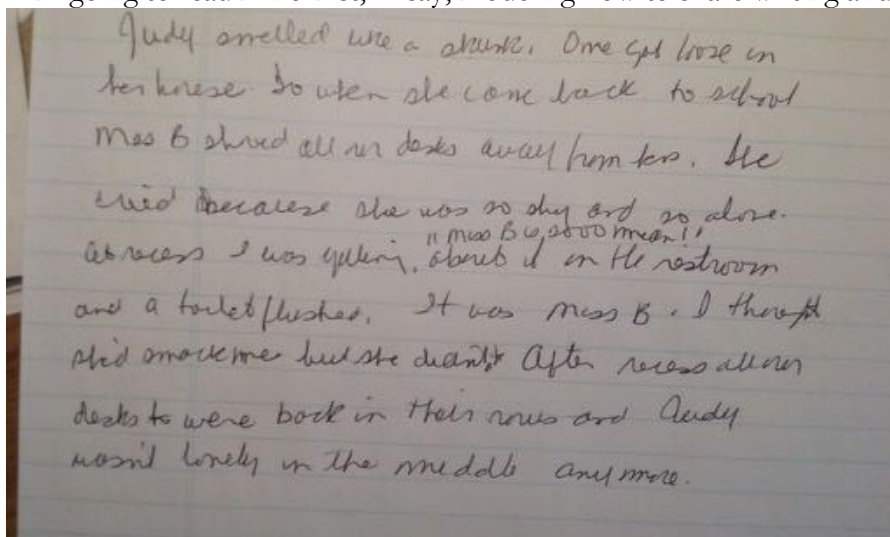 Judy smelled like a skunk. One got loose in
her house so when she come back to school
Miss B shved all our desks away from hers. She
cried because she was so shy and so alone.
"Miss B is sooo mean!"
At recess I was yelling, about it in the restroom
and a toilet flushes. It was Miss B. I thought
she'd smack me but she didn't. After recess all our
desks were back in their rows and Judy
wasn't lonely in the middle anymore.